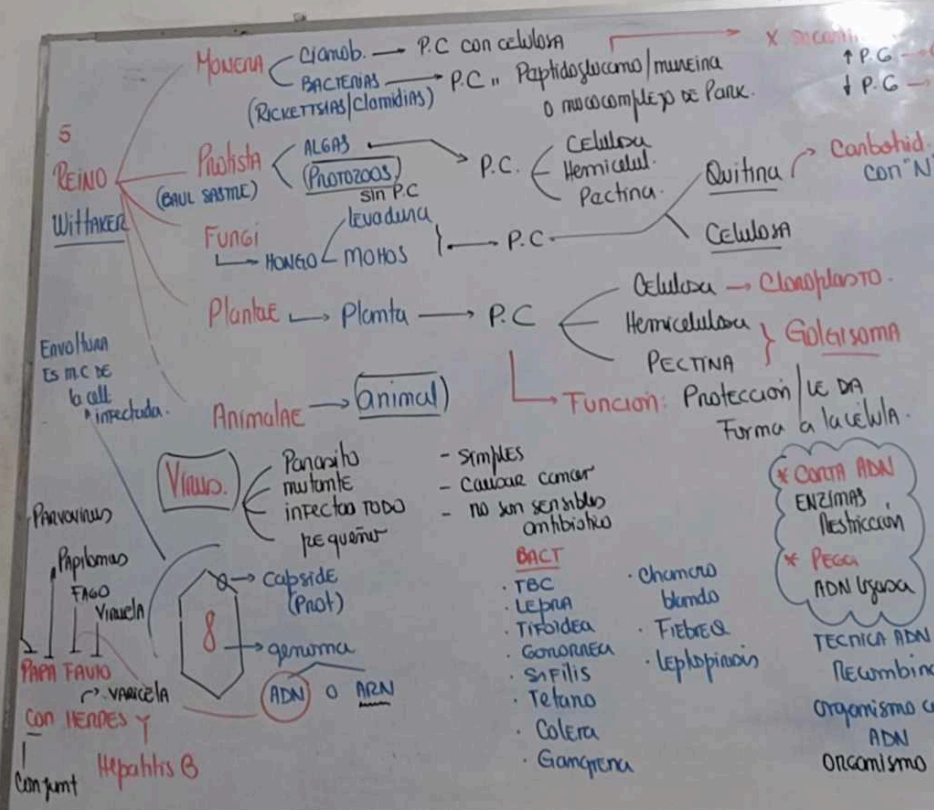 5
REINO
WITTAKER
MONERA
Cianob. → P.C con celulosa
BACTERIAS → P.C " Peptidoglucano/mureina
(RICKETTSIAS/Clamidias)
o mucocomplejo DE PARK.
↑ P.G →
↓ P.G →
Protista
(BAUL SASTRE)
ALGAS
(PROTOZOOS)
sin P.C
P.C.
Celulosa
Hemicelul.
Pectina.
Fungi
HONGO
levadura
MOHOS
P.C
Quitina
Carbohid.
con "N"
Celulosa
Plantae → Planta → P.C
Celulosa → Cloroplasto.
Hemicelulosa
PECTINA
GOLGISOMA
Funcion: Proteccion/LE DA
Forma a la celula.
Animalae → animal
Envoltura
Es m.c DE
la cell
infectada.
Virus.
Parasito
mutante
infectan TODO
pequeños
- simples
- Causar cancer
- no son sensibles
antibiotico
Parvovirus
Papilomas
FAGO
Viruela
PAPA FAVIO
→ VARICELA
Con HERPES Y
Hepatitis B
Conjunt
capside
(Prot)
genoma
ADN O ARN
BACT
· TBC
· LEPRA
· TIFOIDEA
· Gonorrea
· SIFILIS
· Tetano
· Colera
· Gangrena
· Chancro
blando
· FIEBRE Q
· Leptopirosis
* CORTA ADN
ENZIMAS
Restriccion
* PEGA
ADN ligasa
TECNICA ADN
Recombin
Organismo
ADN
ORGANISMO